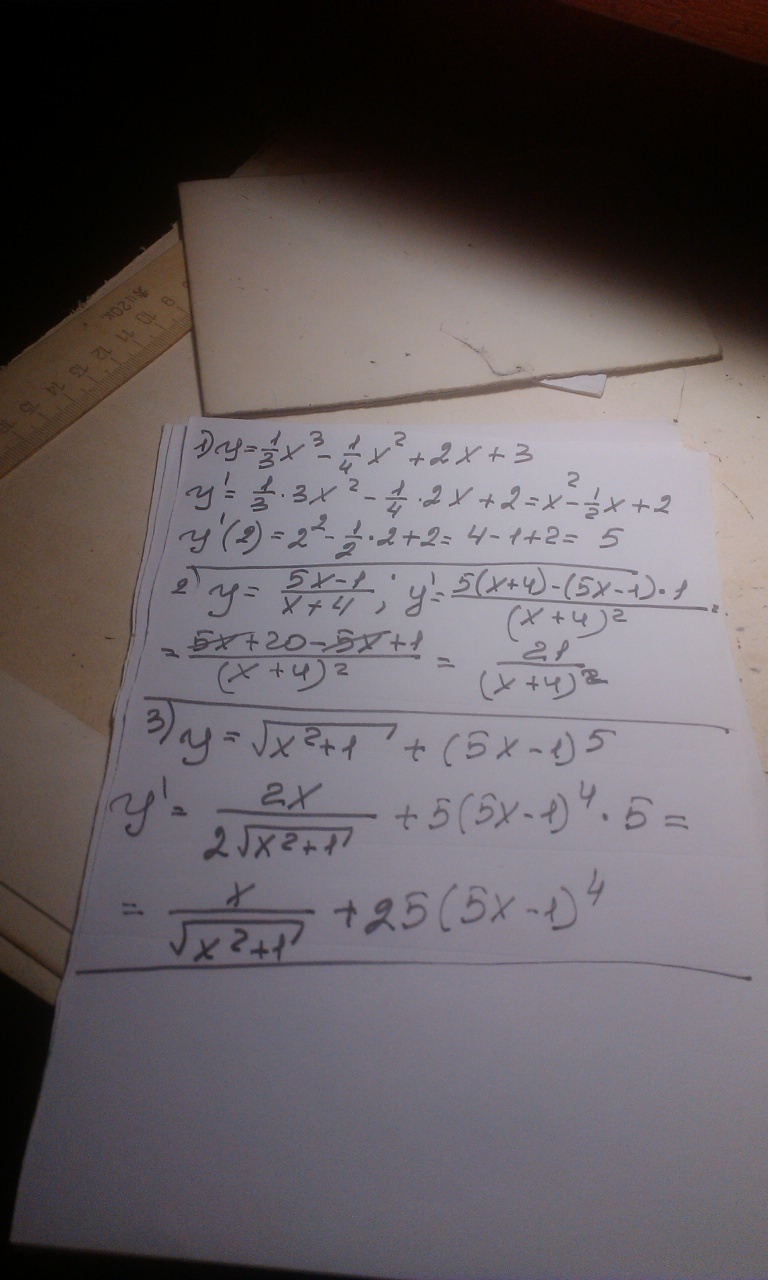 1) y = 1/3 x³ - 1/4 x² + 2x + 3
y' = 1/3 · 3x² - 1/4 · 2x + 2 = x² - 1/2 x + 2
y'(2) = 2² - 1/2 · 2 + 2 = 4 - 1 + 2 = 5
2) y = (5x-1)/(x+4) ; y' = (5(x+4) - (5x-1)·1)/(x+4)² =
= (5x+20-5x+1)/(x+4)² = 21/(x+4)²
3) y = √(x²+1) + (5x-1)⁵
y' = 2x/(2√(x²+1)) + 5(5x-1)⁴ · 5 =
= x/√(x²+1) + 25(5x-1)⁴
9 10 11 12 13 14 15